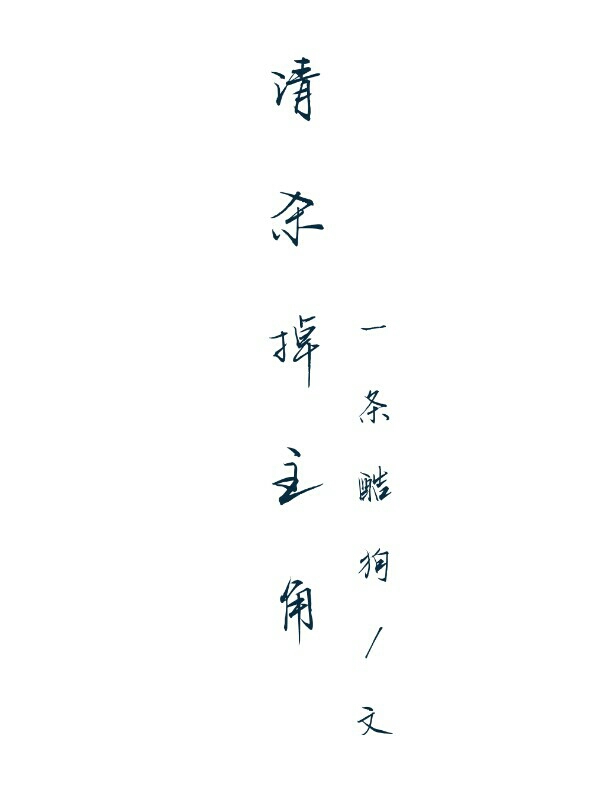 清杀掉主角
一条酷狗/文